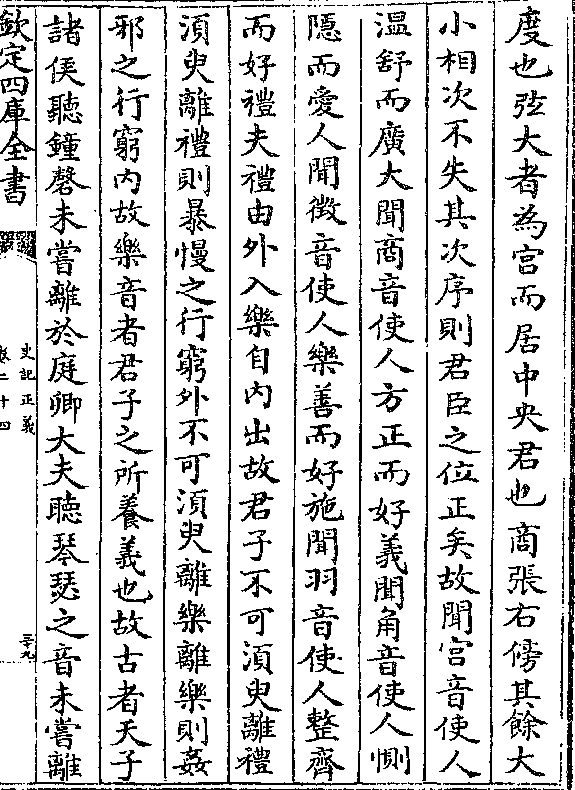 度也弦大者為宫而居中央君也商張右傍其餘大
小相次不失其次序則君臣之位正矣故聞宫音使人
温舒而廣大聞商音使人方正而好義聞角音使人惻
隠而愛人聞徴音使人樂善而好施聞羽音使人整齊
而好禮夫禮由外入樂自内出故君子不可湏臾離禮
湏臾離禮則暴慢之行窮外不可湏臾離樂離樂則姦
邪之行窮内故樂音者君子之所養義也故古者天子
諸侯聽鐘磬未嘗離於庭卿大夫聴琴瑟之音未嘗離
欽定四庫全書
史記正義
卷二十四
三十九